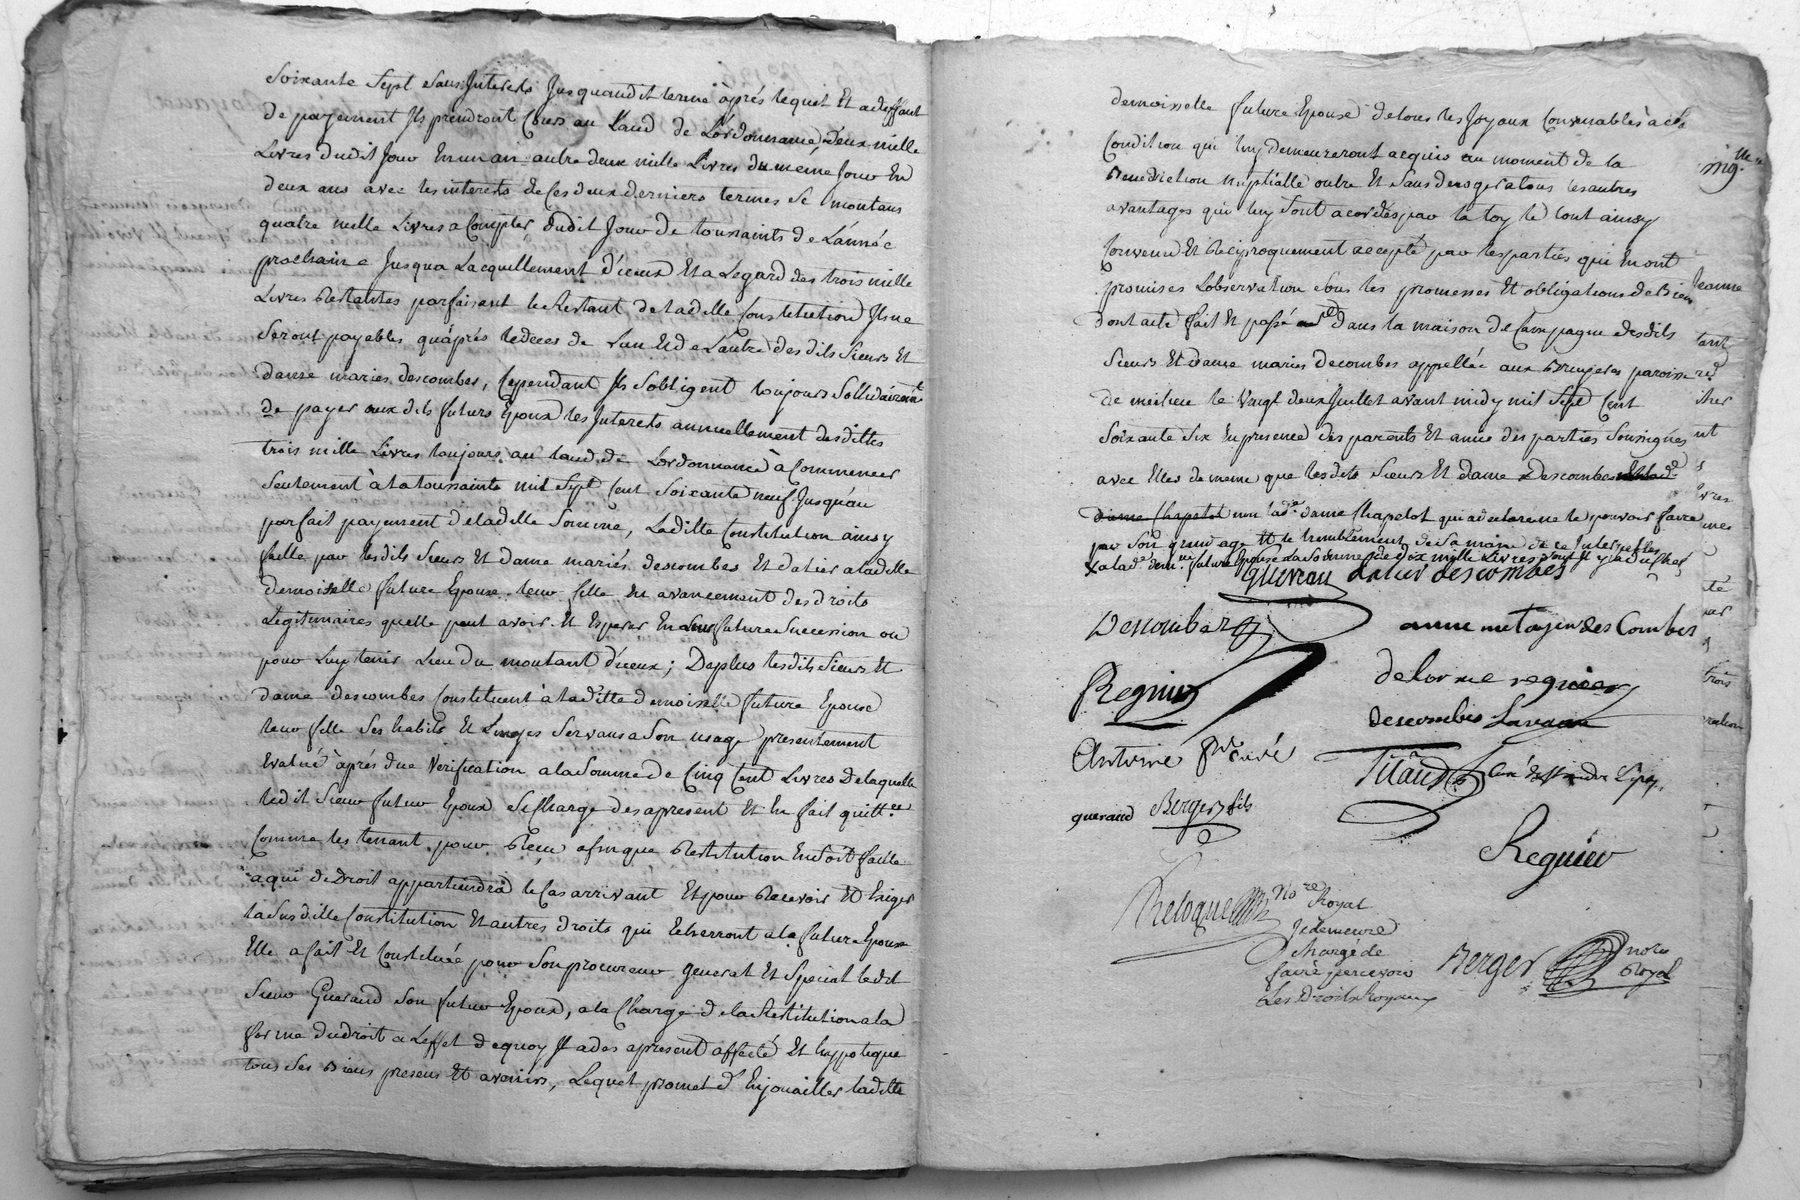 Soixante Sept sans Interets Jusquaudit terme àprés lequel Et adeffaut
de payement Ils prendront Cours au taud de L'ordonnance, deux mille
Livres dudit Jour En un an autre deux mille Livres du meme Jour En
deux ans avec les interets de Ces deux derniers termes Se montans
quatre mille Livres a Compter dudit Jour de toussaints de L'année
prochaine Jusqua Lacquittement d'iceux Et a Legard des trois mille
Livres Restantes parfaisant le Restant de ladille Constitution Ils ne
Seront payables qu'àprés le deces de L'un Et de L'autre des dits Sieurs Et
dame mariés descombes, Cependant Ils Sobligent toujours Sollidairemt
de payer aux dits futurs Epoux les Interets annuellement desdittes
trois mille Livres toujours au taud de Lordonnance à Commencer
Seulement à la toussaints mil Sept Cent Soixante neuf Jusqu'au
parfait payement de ladille Somme, Laditte Constitution ainsy
faitte par lesdits Sieurs Et dame mariés descombes Et datier a ladille
demoiselle future Epouse leur fille En avancement des droits
Legitimaires quelle peut avoir Et Esperer En leur future Succession ou
pour Luy tenir Lieu du montant d'iceux ; Deplus lesdits Sieurs Et
dame descombes Constituent à laditte demoiselle future Epouse
leur fille Ses habits Et Linges Servans a Son usage presentement
Evalué àprés due Verification a la Somme de Cinq Cent Livres De laquelle
ledit Sieur futur Epoux Se Charge des apresent Et En fait quittce
Comme les tenant pour Reçu afin que Restitution En Soit faitte
a qui de Droit appartiendra le Cas arrivant Et pour Recevoir Et Exiger
la Susditte Constitution Et autres droits qui Echerront a la future Epouse
Elle a fait Et Constitué pour Son procureur general Et Special ledit
Sieur Gueraud Son futur Epoux, a la Charge de la Restitution a la
forme du droit a Leffet de quoy Il a des apresent affecté Et hyppotequé
tous Ses Biens presens Et avenirs, Lequel promet d'Enjouailler ladille
demoiselle future Epouse de tous les Joyaux Convenables à Sa
Condition qui luy demeureront acquis au moment de la
Benediction nuptialle outre Et Sans deroger a tous les autres
avantages qui luy Sont acordés par la loy le tout ainsy
Convenu Et Reciproquement accepté par les parties qui En ont
promises Lobservation Sous les promesses Et obligations de Biens
dont acte fait Et passé dans la maison de Campagne desdits
Sieurs Et Dame mariés Decombes appellée aux Bruyeres paroisse
de milieu le Vingt deux Juillet avant midy mil Sept Cent
Soixante Six En presence des parents Et amis des parties Soussignés
avec Elles de meme que lesdits Sieurs Et Dame Descombes
dame Chapelot non lade dame Chapelot qui a declaré ne le pouvoir faire
par Son grand age Et le tremblement de Sa main de ce Interpellée
x a lade demlle future Epouse la Somme de dix mille Livres
Gueraud datier descombes
Descombes
anne metayer des Combes
Regnier
delorme regnier
descombes
Antoine Ptre Curé
Titaud
gueraud Berger fils
Regnier
Reloque Nore Royal
Je demeure
Chargé de
faire percevoir
Les Droits Royaux
Berger nore
Royal
Jeanne